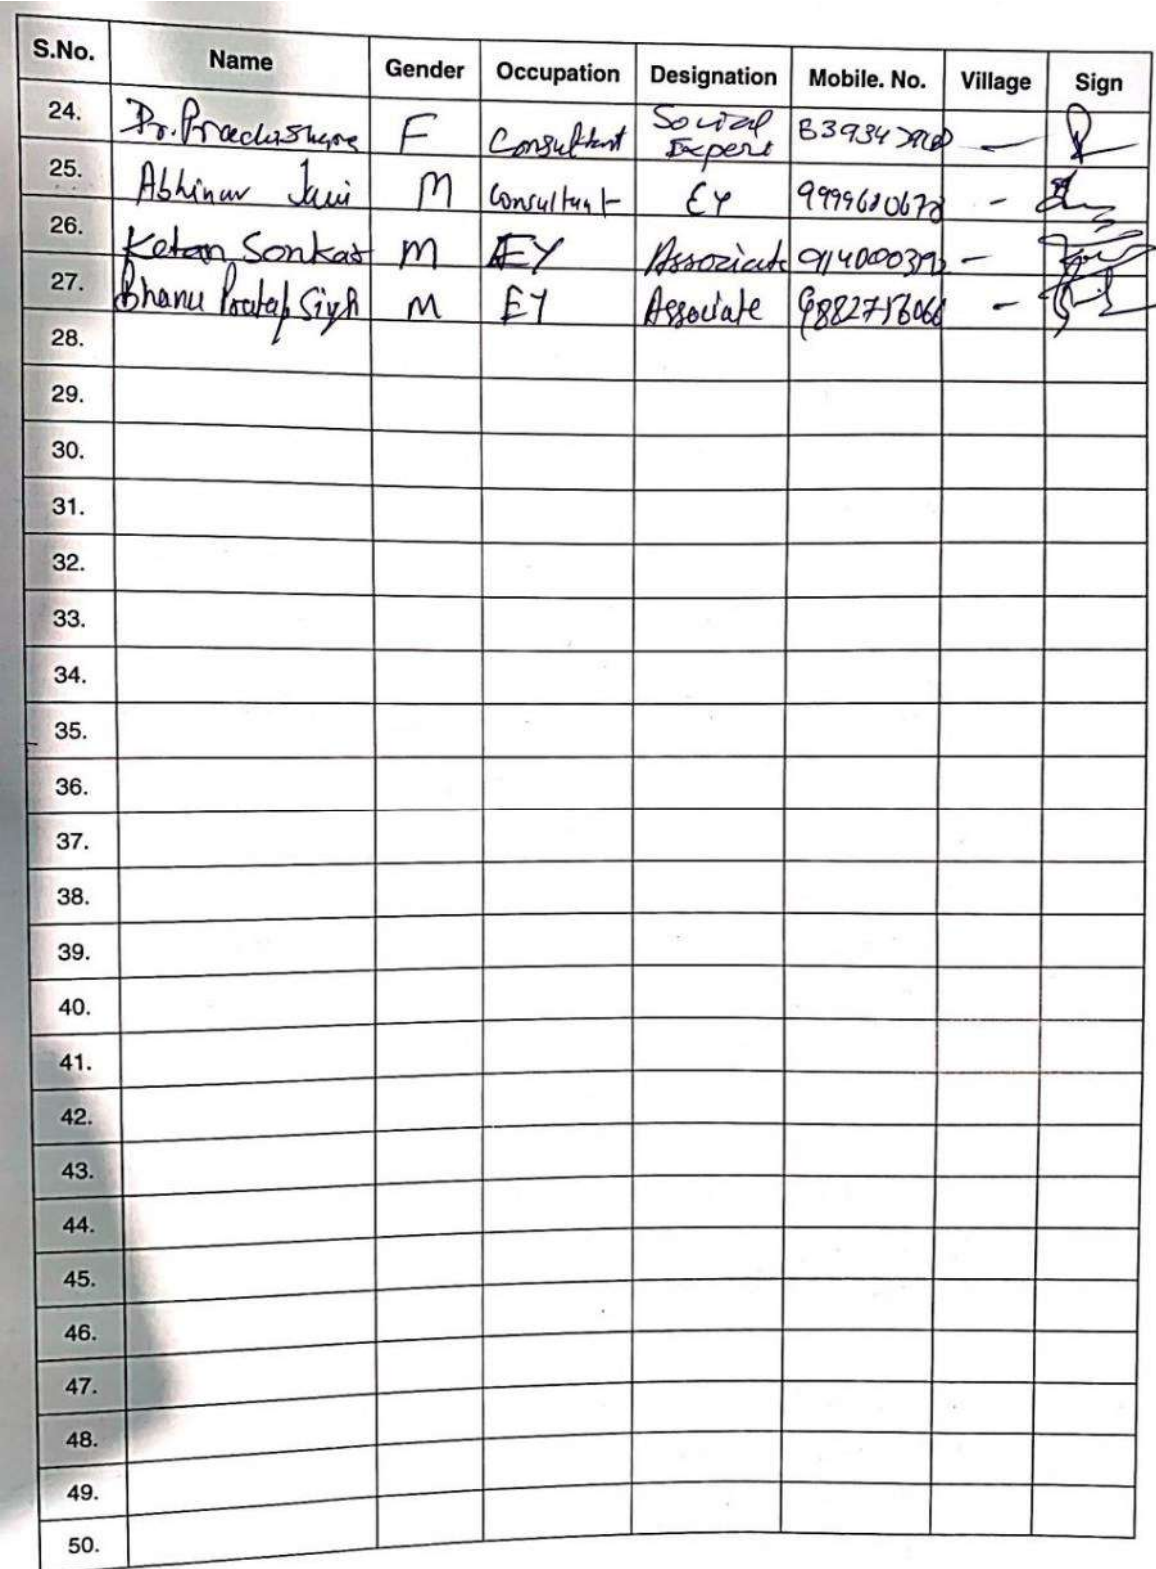 S.No. Name Gender Occupation Designation Mobile. No. Village Sign
24. Dr. F Consultant Social Expert -
25. Abhinav Jain M Consultant EY 9999610678 -
26. Ketan Sonkar M EY Associate -
27. Bhanu Pratap Singh M EY Associate 9882756066 -
28.
29.
30.
31.
32.
33.
34.
35.
36.
37.
38.
39.
40.
41.
42.
43.
44.
45.
46.
47.
48.
49.
50.